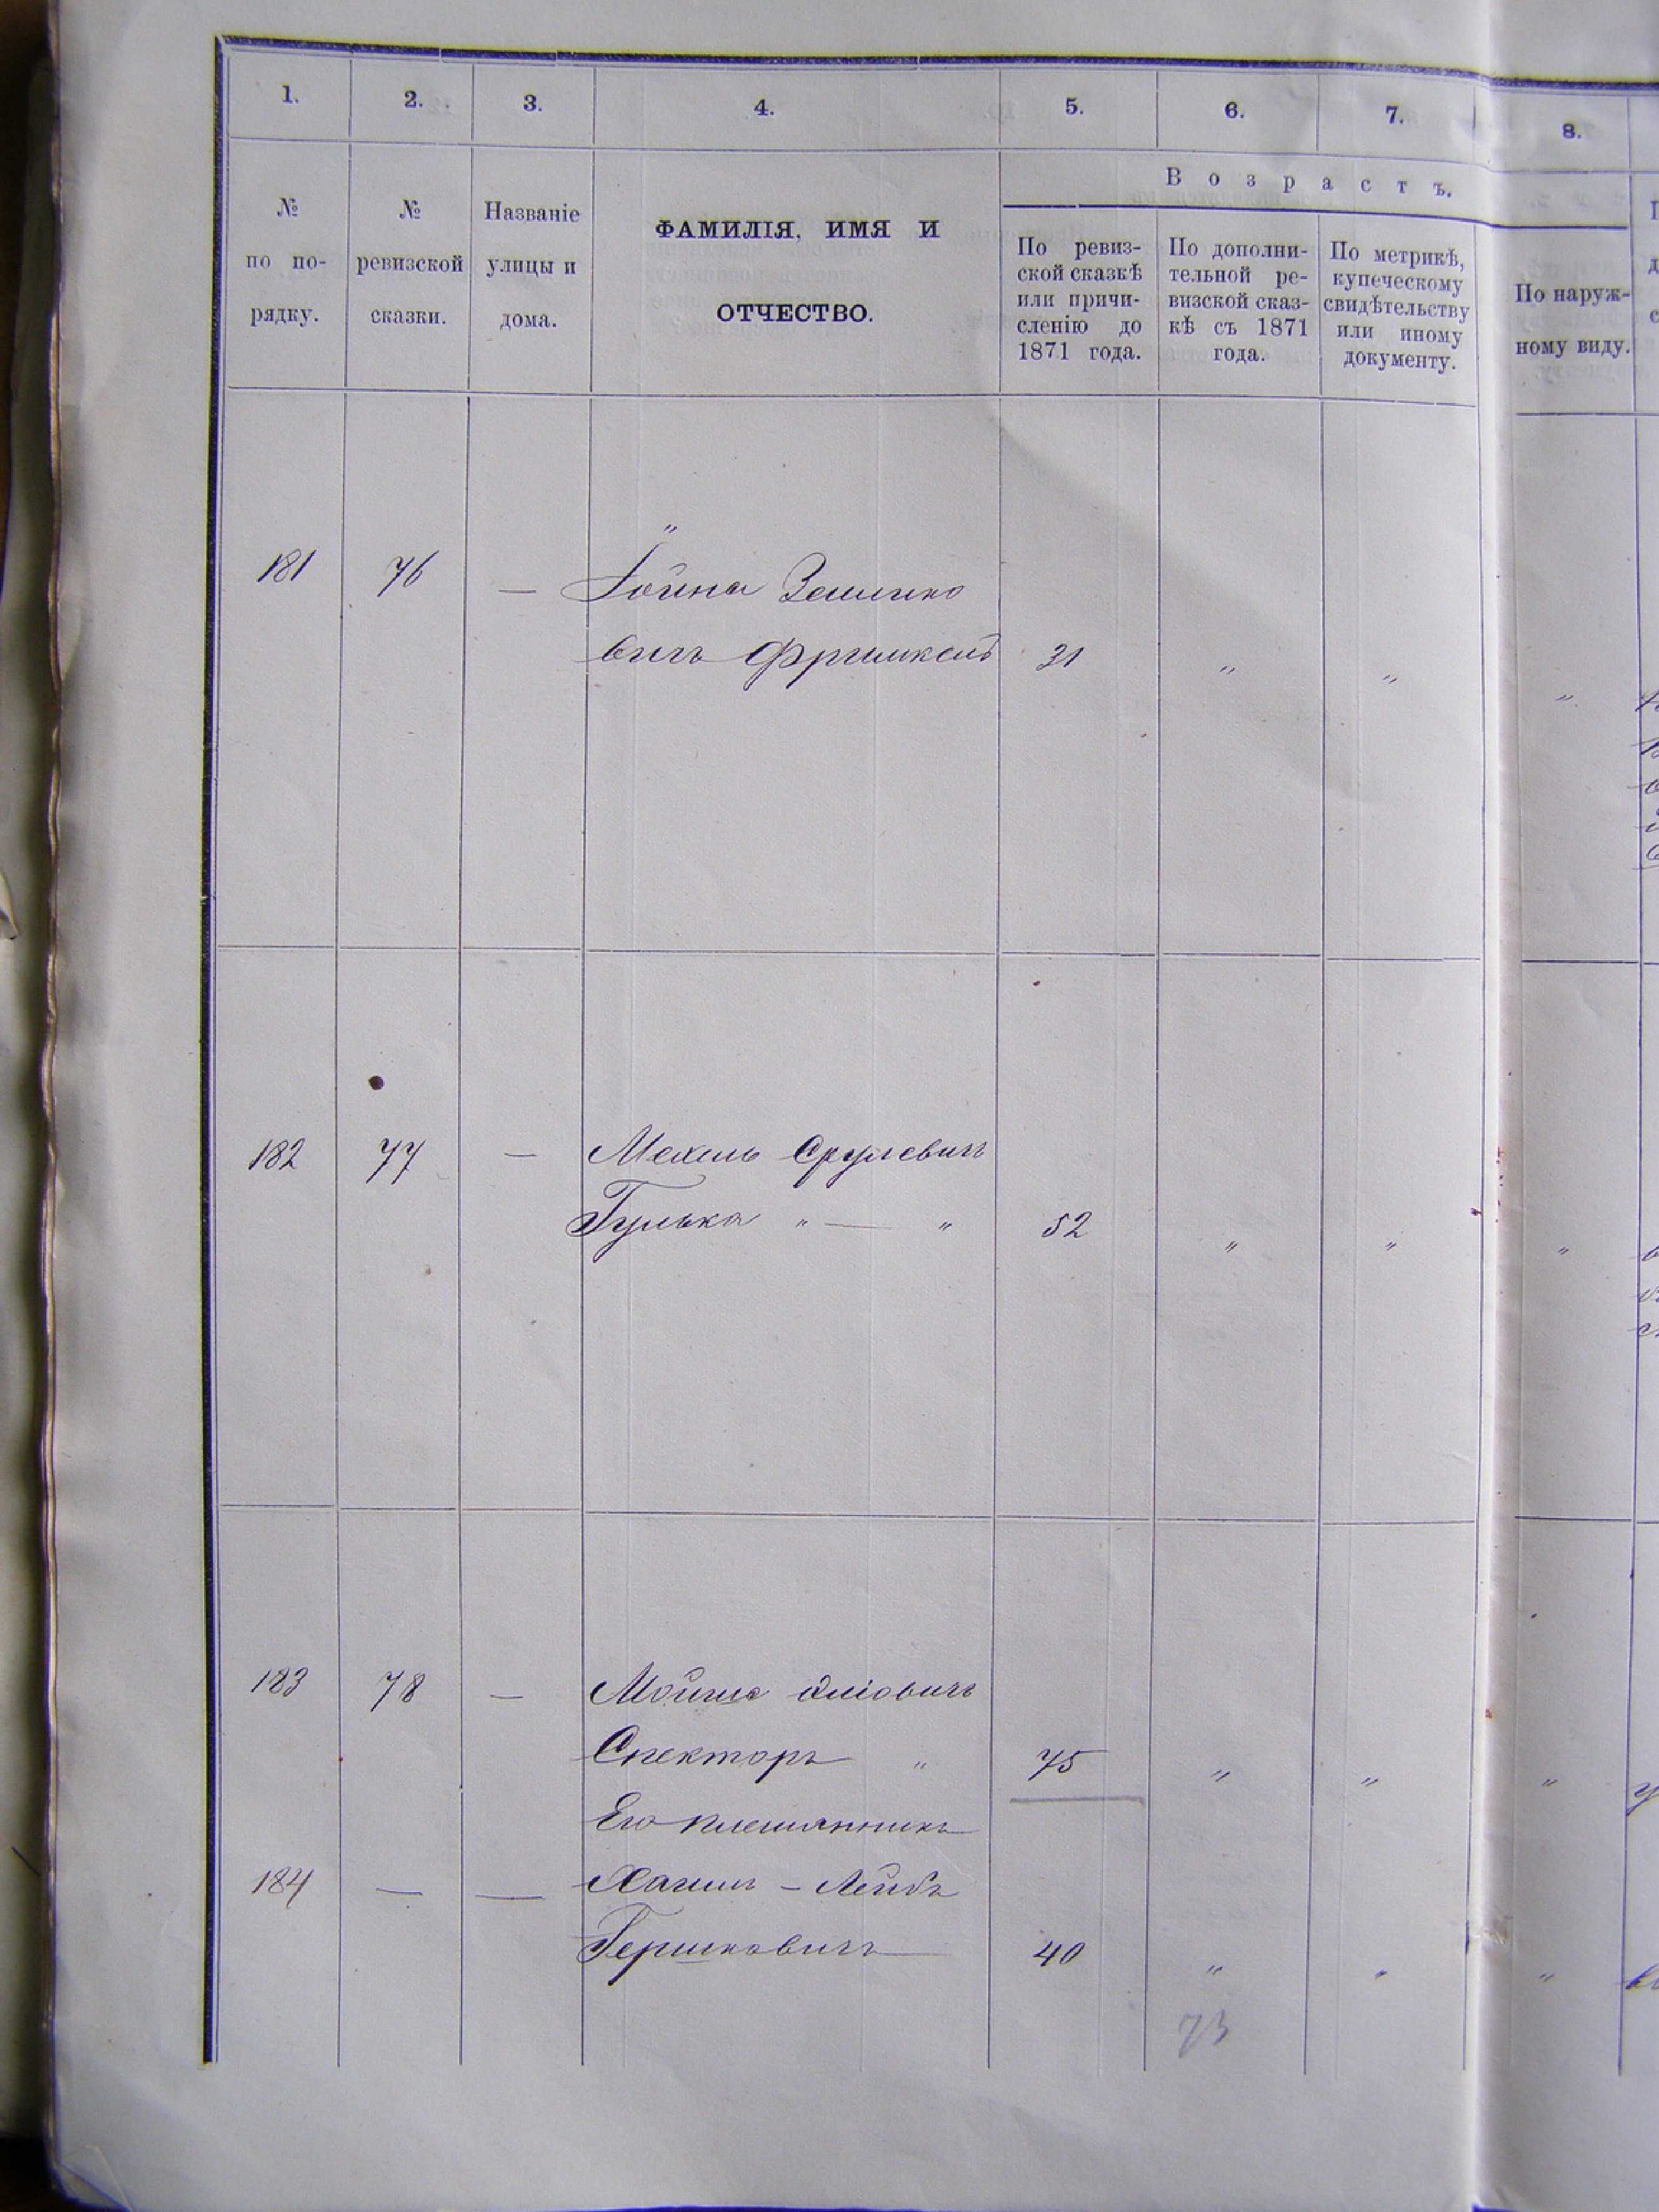 1. 2. 3. 4. 5. 6. 7. 8.
№ по порядку.
№ ревизской сказки.
Названіе улицы и дома.
ФАМИЛІЯ, ИМЯ И
ОТЧЕСТВО.
Возрастъ.
По ревиз-
ской сказкѣ
или причи-
сленію до
1871 года.
По дополни-
тельной ре-
визской сказ-
кѣ съ 1871
года.
По метрикѣ,
купеческому
свидѣтельству
или иному
документу.
По наруж-
ному виду.
"
181 76 — Іойна
вичъ 31 " " "
182 77 — Мехель Срулевичъ
Гулька " — " 52 " " "
183 78 — Мойше Эліовичъ
Спекторъ " 75 " " "
Его племянникъ
184 — — Хаимъ - Лейбъ
Гершковичъ 40 " " "
73